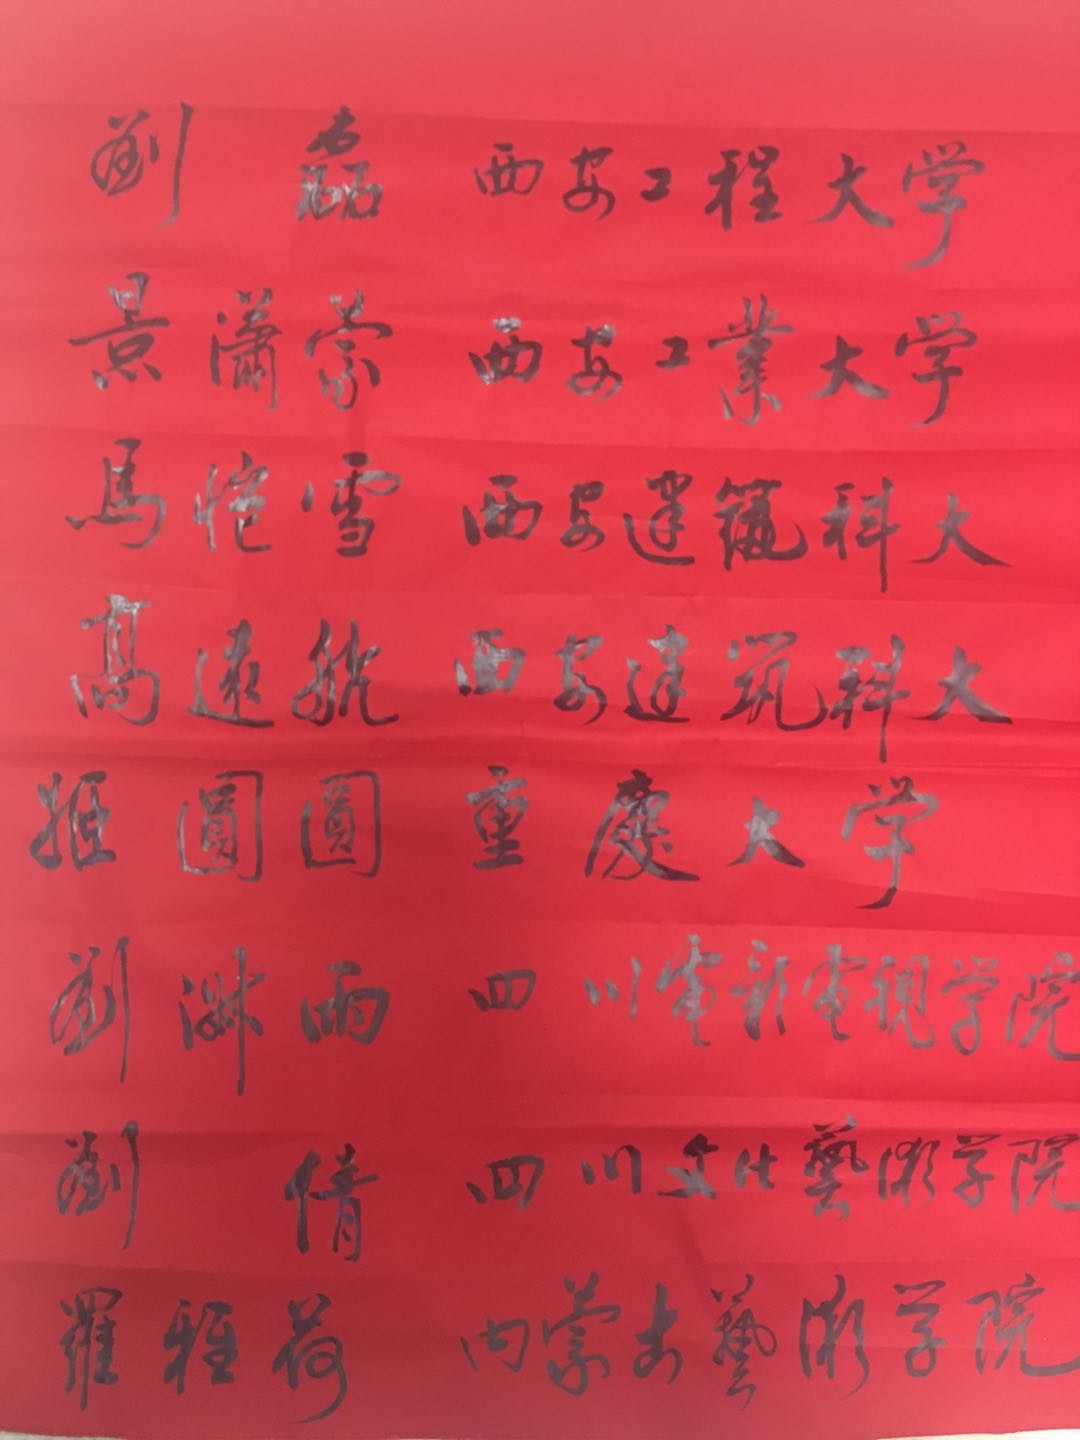 劉 磊 西安工程大学
景瀟蒙 西安工業大学
馬愷雪 西安建築科大
高遠航 西安建筑科大
姬圓圓 重慶大学
劉沭雨 四川電影電視学院
劉 倩 四川文化藝術学院
羅雅荷 内蒙古藝術学院